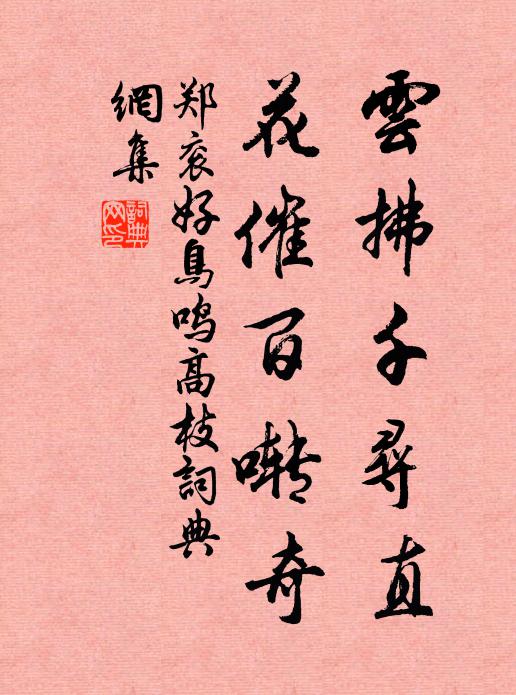 雲拂千尋直
花催百啭奇
郑衮好鳥鸣高枝詞典
網集
詞典網印